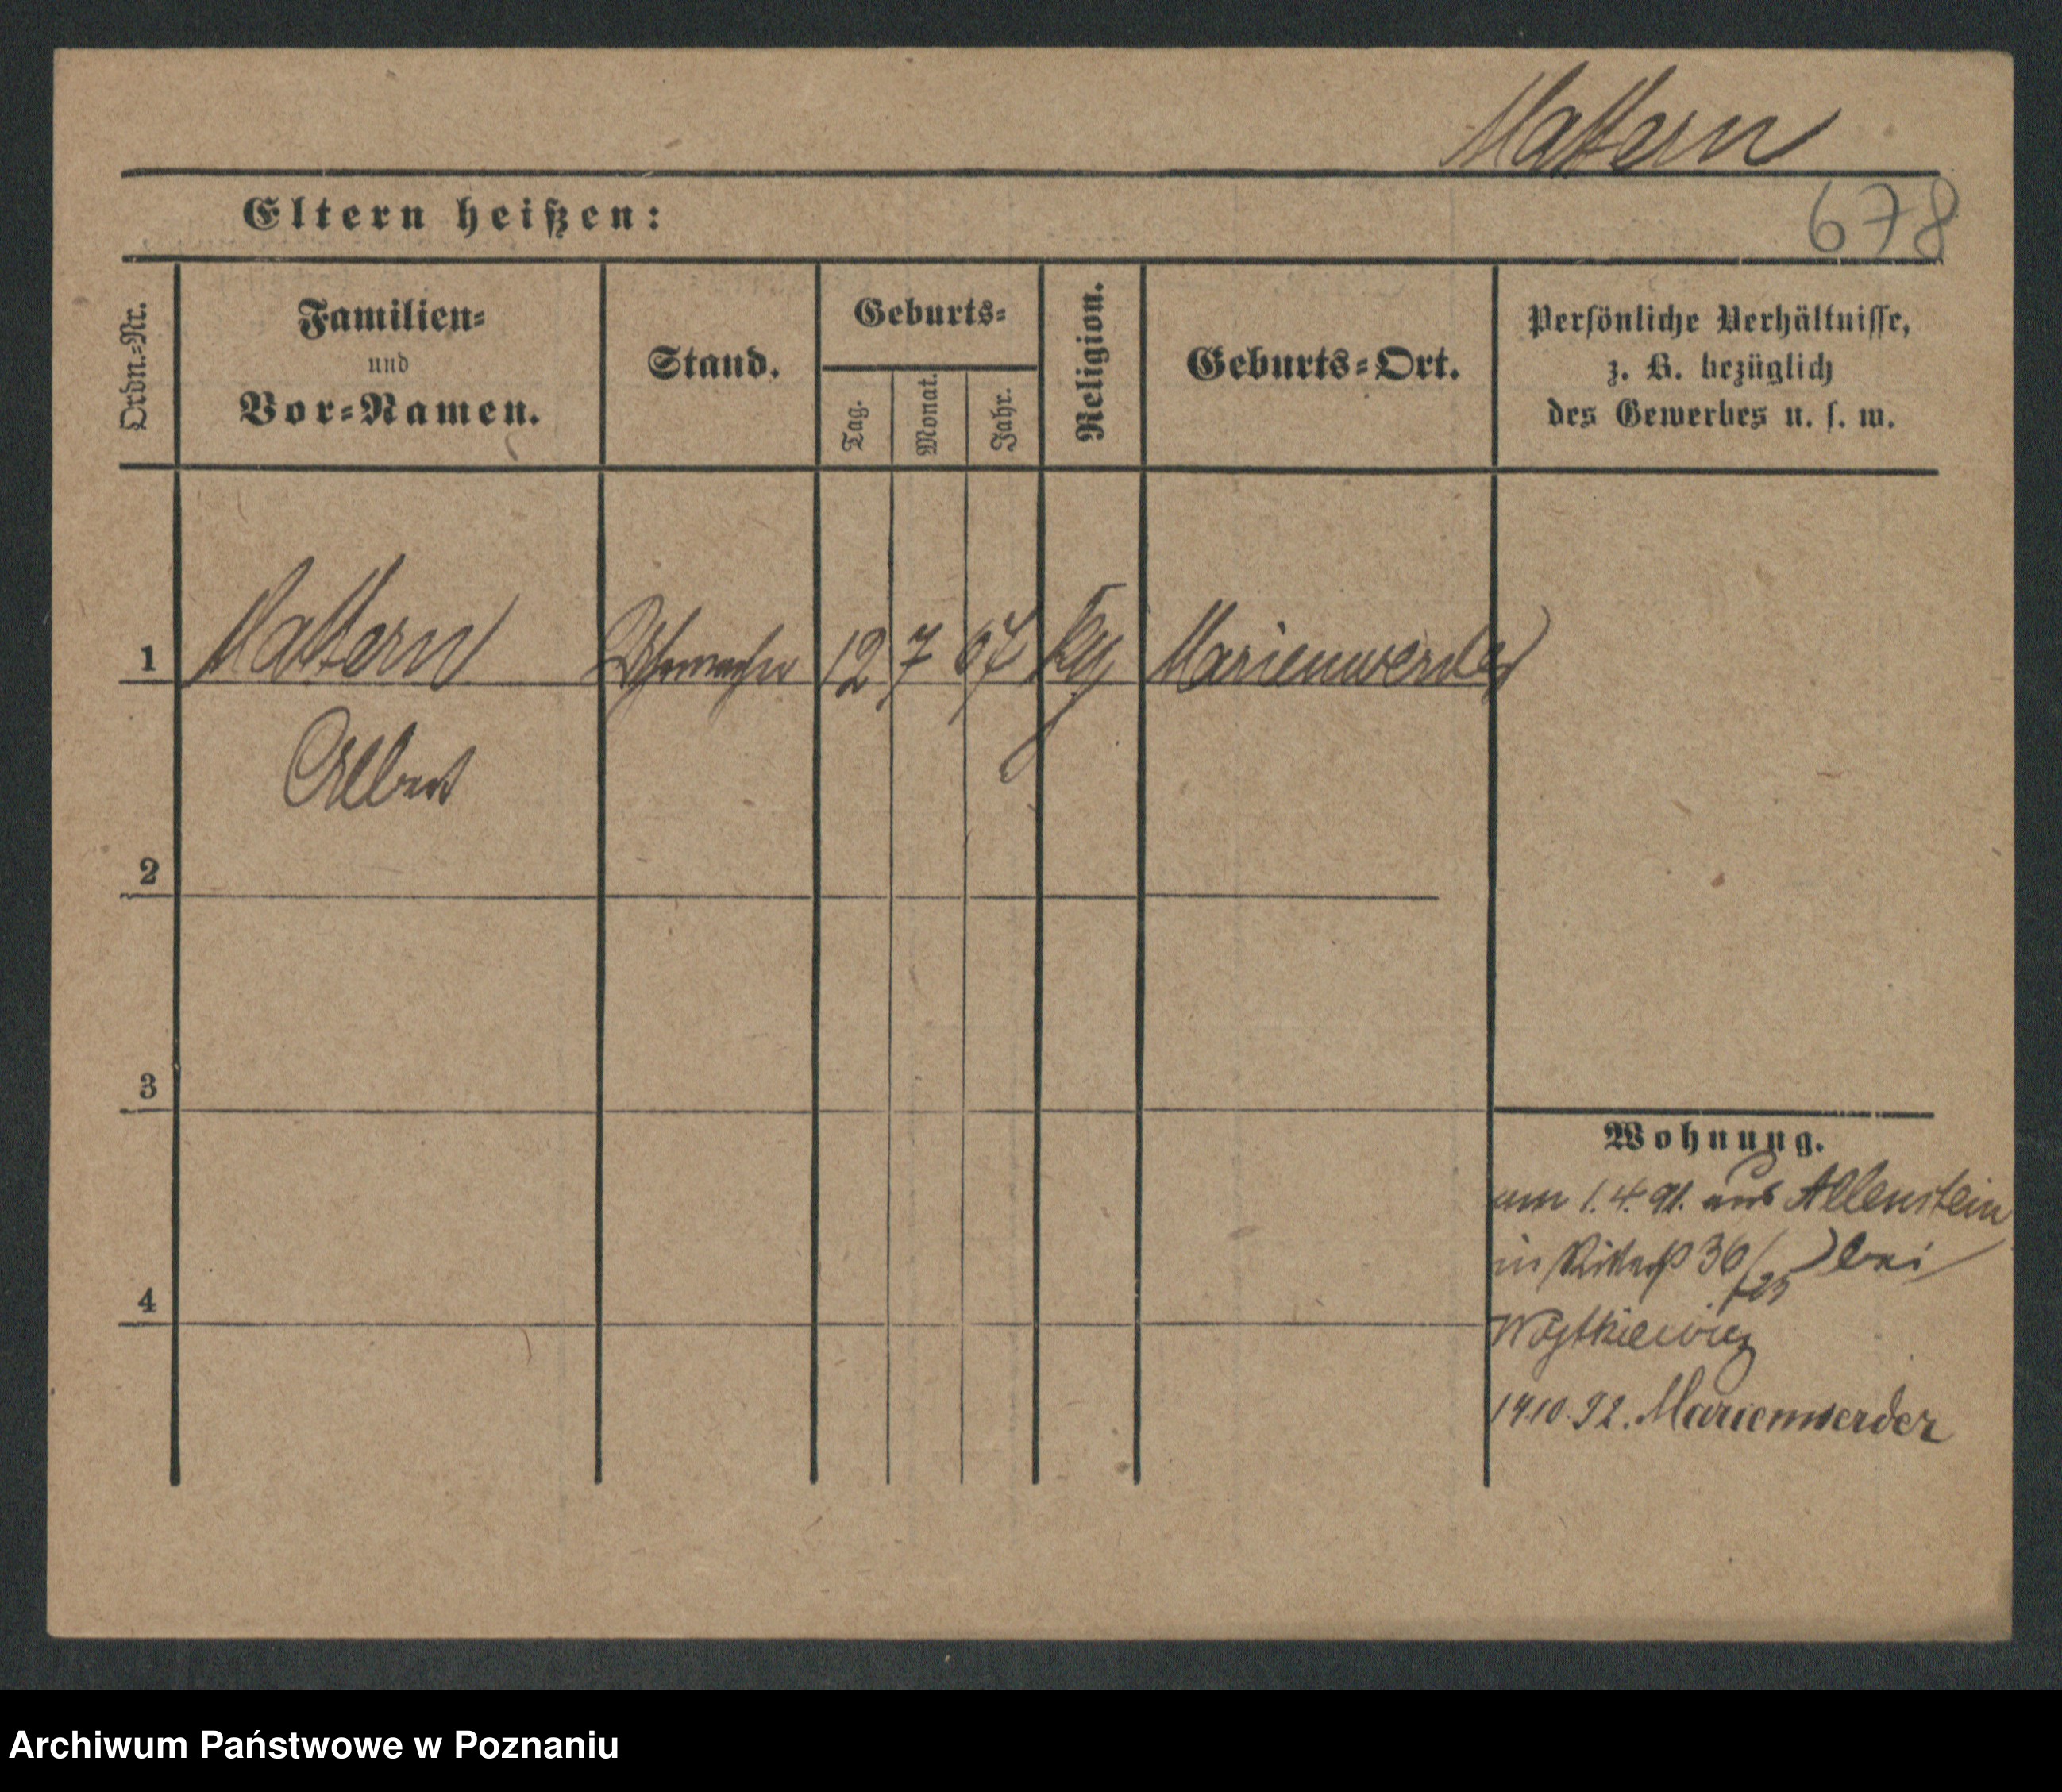 Mattern
678
Eltern heißen:
Ordn.-Nr.
Familien-
und
Vor-Namen.
Stand.
Geburts-
Tag.
Monat.
Jahr.
Religion.
Geburts-Ort.
Persönliche Verhältnisse,
z. B. bezüglich
des Gewerbes u. s. w.
1 Mattern Uhrmacher 12 7 67 Marienwerder
Albert
2
3
Wohnung.
am 1.4.91. aus Allenstein
in 36/ bei
4
14.10.92. Marienwerder
Archiwum Państwowe w Poznaniu